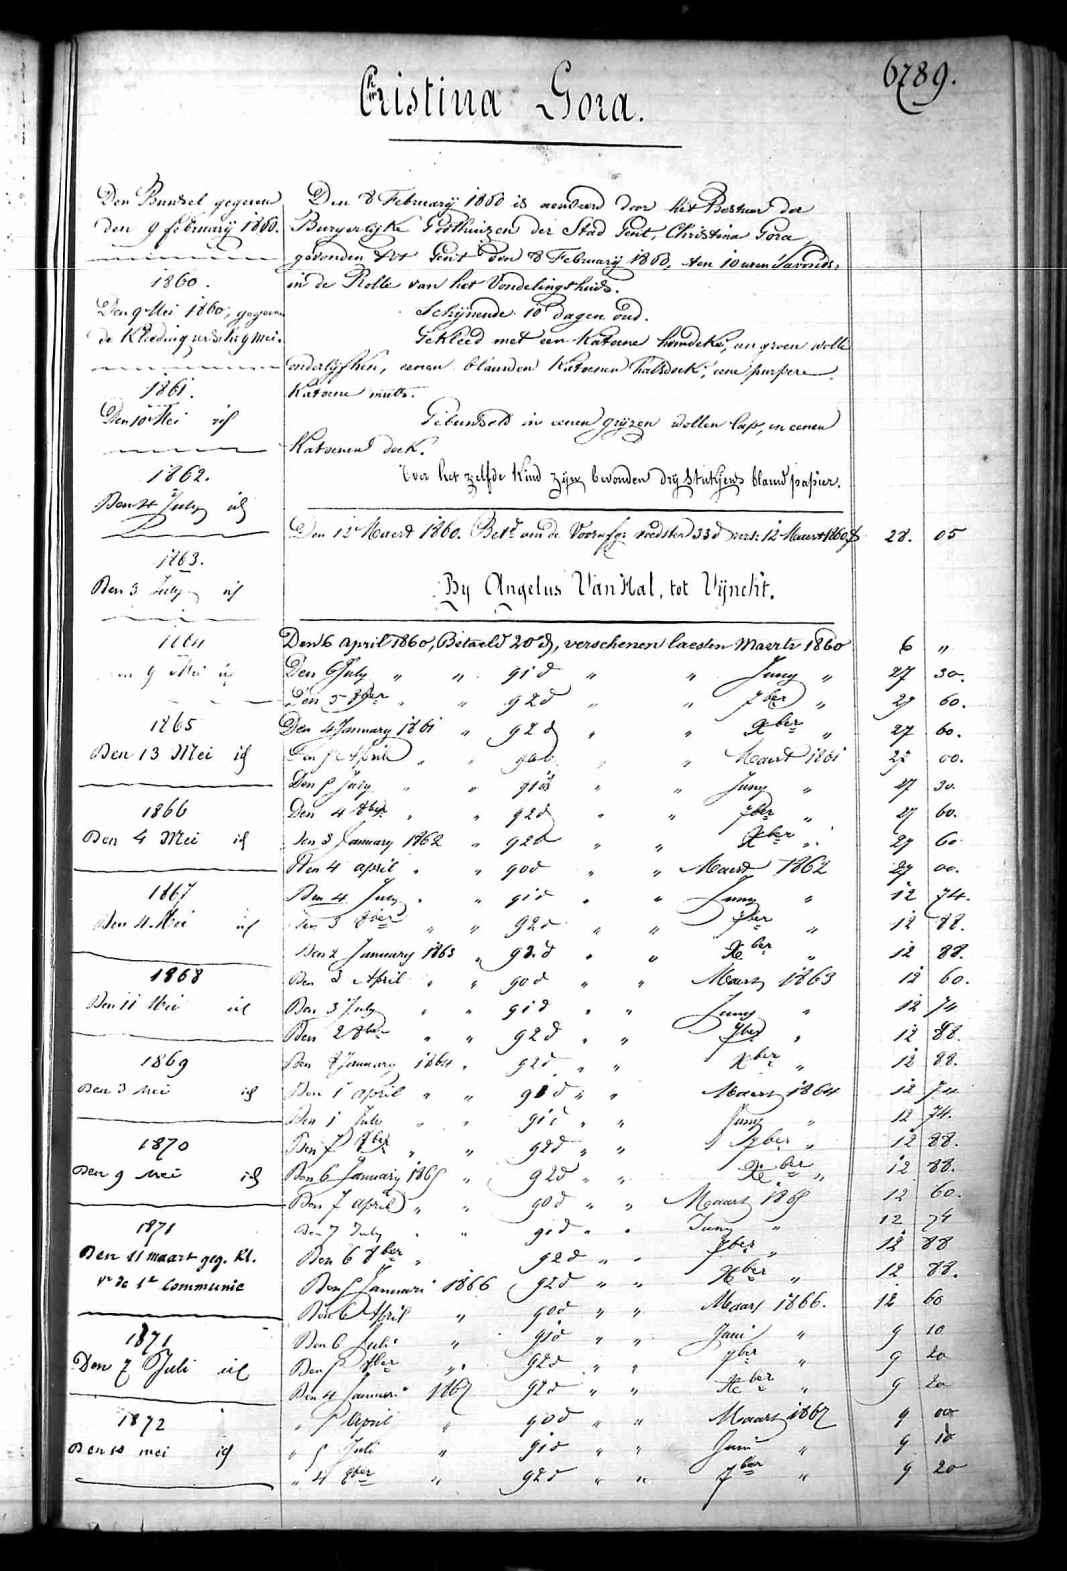 6789.
Christina Gora.
Den Bundsel gegeven
den 9 february 1860.
1860.
Den 9 Mei 1860, gegeven
de Kleeding
1861.
Den 10 Mei id
1862.
Den 4 July id
1863.
Den 3 July id
1864
9 Mei id
1865
Den 13 Mei id
1866
Den 4 Mei id
1867
Den 4 Mei id
1868
Den 11 Mei id
1869
Den 3 Mei id
1870
Den 9 Mei id
1871
Den 11 maart geg. Kl.
vr de 1e Communie
1871
Den 7 Juli id
1872
Den 10 mei id
Den 8 February 1860 is aenveerd door het Bestuer der
Burgerlijke Godshuizen der Stad Gent, Christina Gora,
gevonden tot Gent den 8 February 1860, ten 10 uren 'Savonds,
in de Rolle van het Vondelingshuis.
Schijnende 10 dagen oud.
Gekleed met een Katoene hemdeke, een groen wolle
onderlijfken, eenen blauwden Katoenen halsdoek, eene purpere
Katoene muts.
Gebundeld in eenen grijzen wollen lap, en eenen
Katoenen doek.
Over het zelfde Kind zijn bevonden dry stukjens blauw papier.
Den 12 Maert 1860. Bet. aen de voedster 33d vers: 12 Maert 1860 28. 05
By Angelus Van Hal, tot Vijnckt.
Den 6 April 1860, Betaeld 20 d, verschenen laesten Maerte 1860 6 "
Den 6 July " " 91 d " " Juny " 27 30.
Den 5 8ber " " 92 d " " 7ber " 27 60.
Den 4 January 1861 " 92 d " " Xber " 27 60.
April " " 90 d " " Maert 1861 27 00.
Den 5 July " " 91 d " " Juny " 27 30
Den 4 8ber " " 92 d " " 7ber " 27 60.
Den 3 January 1862 " 92 d " " Xber " 27 60
Den 4 april " " 90 d " " Maert 1862 27 00.
Den 4 July " " 91 d " " Juny " 12 74.
Den 3 8ber " " 92 d " " 7ber " 12 88.
Den 2 January 1863 " 92 d " " Xber " 12 88.
Den 3 April " " 90 d " " Maert 1863 12 60.
Den 3 July " " 91 d " " Juny " 12 74
Den 2 8ber " " 92 d " " 7ber " 12 88.
Den 8 January 1864 " 92 d " " Xber " 12 88.
Den 1 april " " 91 d " " Maert 1864 12 74
Den 1 July " " 91 d " " Juny " 12 74.
Den 7 8ber " " 92 d " " 7ber " 12 88.
Den 6 January 1865 " 92 d " " Xber " 12 88.
Den 7 april " " 90 d " " Maart 1865 12 60.
Den 7 July " " 91 d " " Juny " 12 74
Den 6 8ber " 92 d " " 7ber " 12 88
Den 5 Januari 1866 92 d " " Xber " 12 88.
Den 6 April " 90 d " " Maart 1866. 12 60
Den 6 Juli " 91 d " " Juni " 9 10
Den 5 8ber " 92 d " " 7ber " 9 20
Den 4 Januari 1867 92 d " " Xber " 9 20
" 5 April " 90 d " " Maart 1867 9 00
" 5 Juli " 91 d " " Juni " 9 10
" 4 8ber " 92 d " " 7ber " 9 20